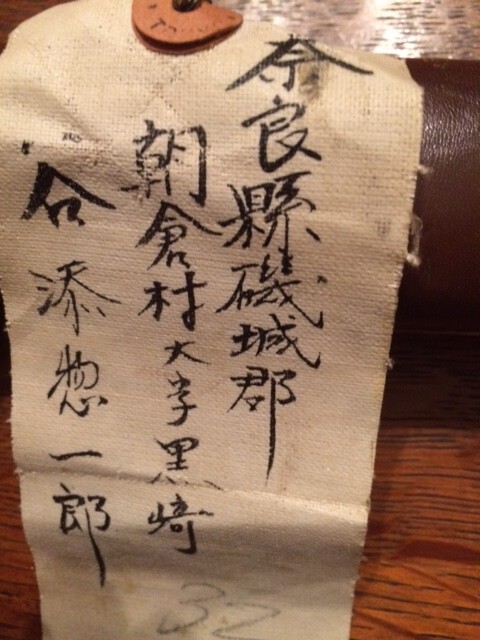 奈良縣磯城郡
朝倉村大字黒崎
谷添惣一郎
32